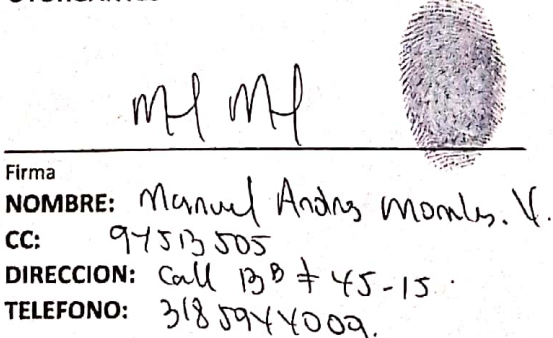 Firma
NOMBRE: Manuel Andres Morales. V.
CC: 94513505
DIRECCION: Call 13B # 45-15.
TELEFONO: 3185944009.